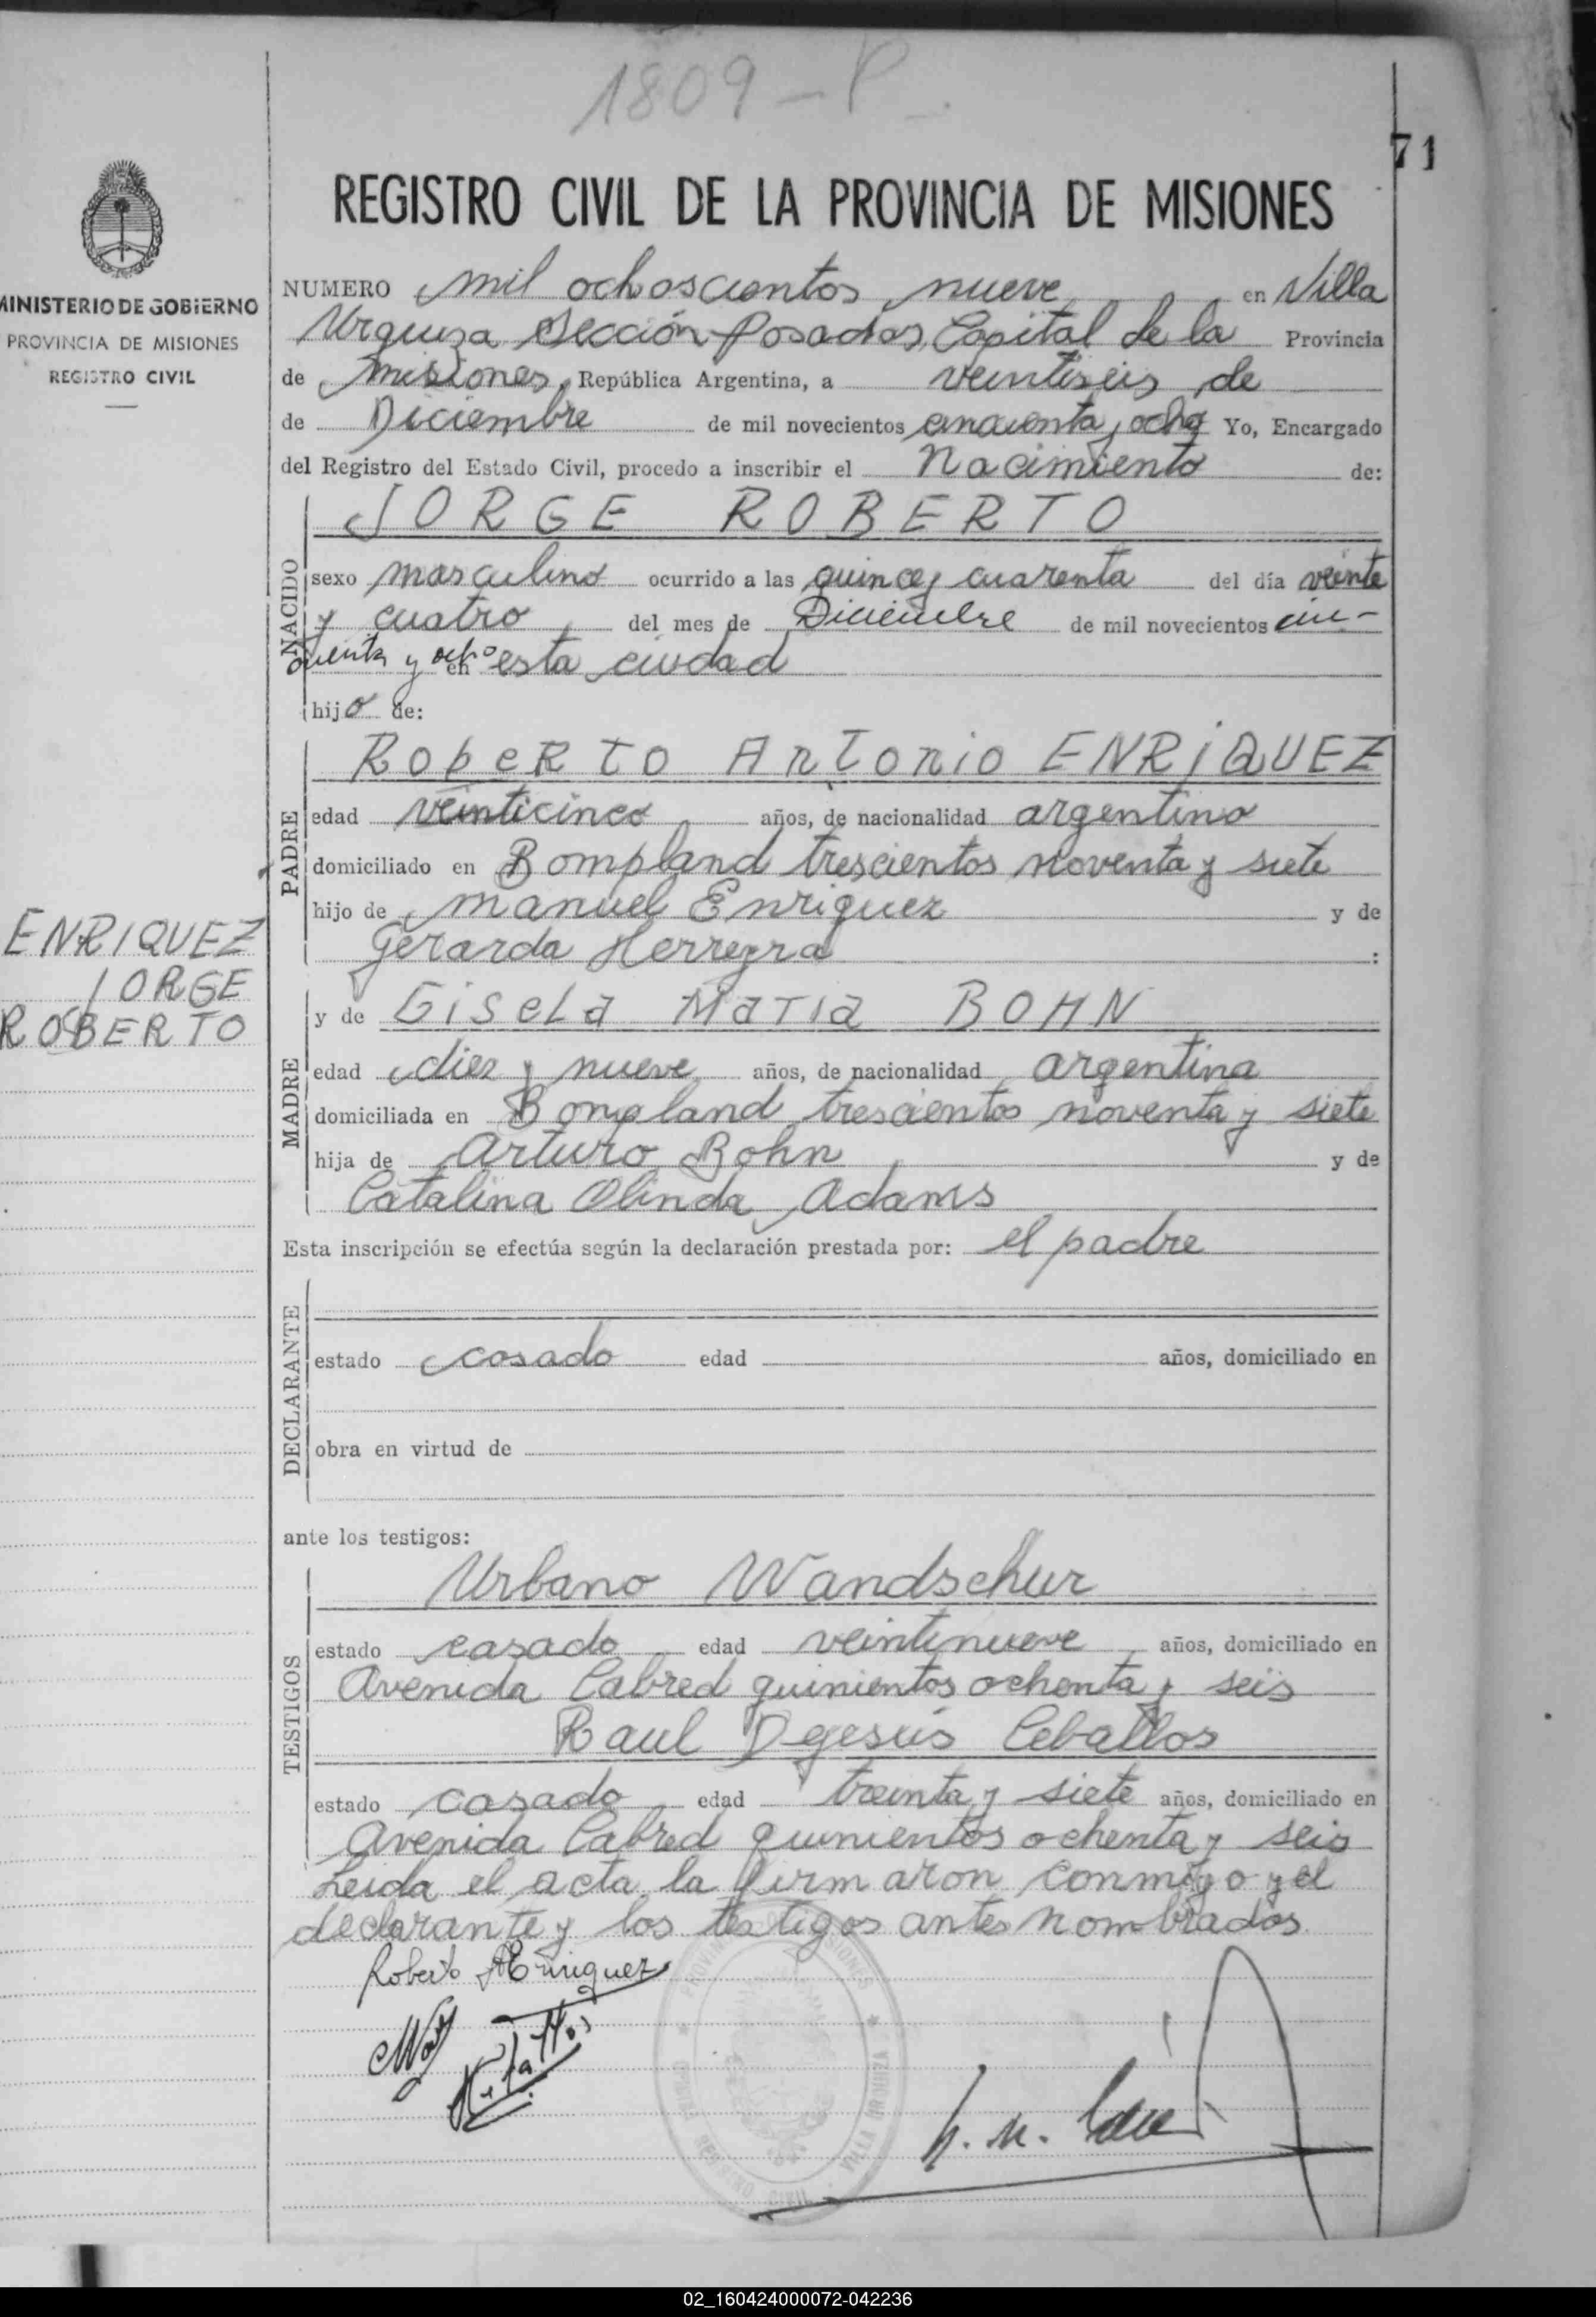 1809 - P.
71
REGISTRO CIVIL DE LA PROVINCIA DE MISIONES
MINISTERIO DE GOBIERNO
PROVINCIA DE MISIONES
REGISTRO CIVIL
NUMERO mil ochoscientos nueve en Villa
Urquiza Sección Posadas, Capital de la Provincia
de Misiones, República Argentina, a veintiseis de
de Diciembre de mil novecientos cincuenta y ocho Yo, Encargado
del Registro del Estado Civil, procedo a inscribir el Nacimiento de:
NACIDO
JORGE ROBERTO
sexo masculino ocurrido a las quince y cuarenta del día veinte
y cuatro del mes de Diciembre de mil novecientos cin-
cuenta y ocho en esta ciudad
hijo de:
PADRE
Roberto Antonio ENRiQUEZ
edad veinticinco años, de nacionalidad argentino
domiciliado en Bompland trescientos noventa y siete
hijo de Manuel Enriquez y de
Gerarda Herreyra :
ENRIQUEZ
JORGE
ROBERTO
MADRE
y de Gisela Maria BOHN
edad diez y nueve años, de nacionalidad argentina
domiciliada en Bompland trescientos noventa y siete
hija de Arturo Bohn y de
Catalina Olinda Adams
Esta inscripción se efectúa según la declaración prestada por: el padre
DECLARANTE
estado casado edad años, domiciliado en
obra en virtud de
ante los testigos:
TESTIGOS
Urbano Wandscheur
estado casado edad veintinueve años, domiciliado en
Avenida Cabred quinientos ochenta y seis
Raul Dejesús Ceballos
estado casado edad treinta y siete años, domiciliado en
Avenida Cabred quinientos ochenta y seis
Leida el acta la firmaron conmigo y el
declarante y los testigos antes nombrados.
Roberto A Enriquez
PROVINCIA DE MISIONES
OFICINA REGISTRO CIVIL VILLA URQUIZA
02_160424000072-042236